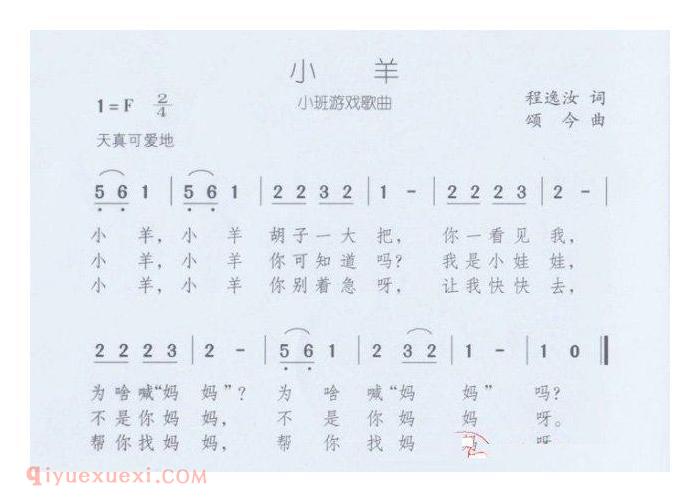 小 羊
小班游戏歌曲
1=F 2/4
程逸汝 词
颂 今 曲
天真可爱地
5 6 1 | 5 6 1 | 2 2 3 2 | 1 - | 2 2 2 3 | 2 - |
小 羊, 小 羊 胡子一大 把, 你一看见 我,
小 羊, 小 羊 你可知道 吗? 我是小娃 娃,
小 羊, 小 羊 你别着急 呀, 让我快快 去,
2 2 2 3 | 2 - | 5 6 1 | 2 3 2 | 1 - | 1 0 ‖
为啥喊“妈 妈”? 为 啥 喊“妈 妈” 吗?
不是你妈 妈, 不 是 你妈 妈 呀。
帮你找妈 妈, 帮 你 找妈 妈 呀
qiyuexuexi.com(七月学习网)